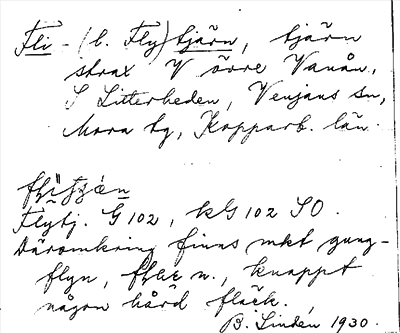 Fli - (l. Fly)tjärn, tjärn
strax V övre Vanån,
S Litterheden, Venjans sn,
Mora tg, Kopparb. län.
Flytj. G 102, kG 102 SO.
Däromkring finns mkt gung-
flyn, n., knappt
någon hård fläck.
B. Lindén, 1930.